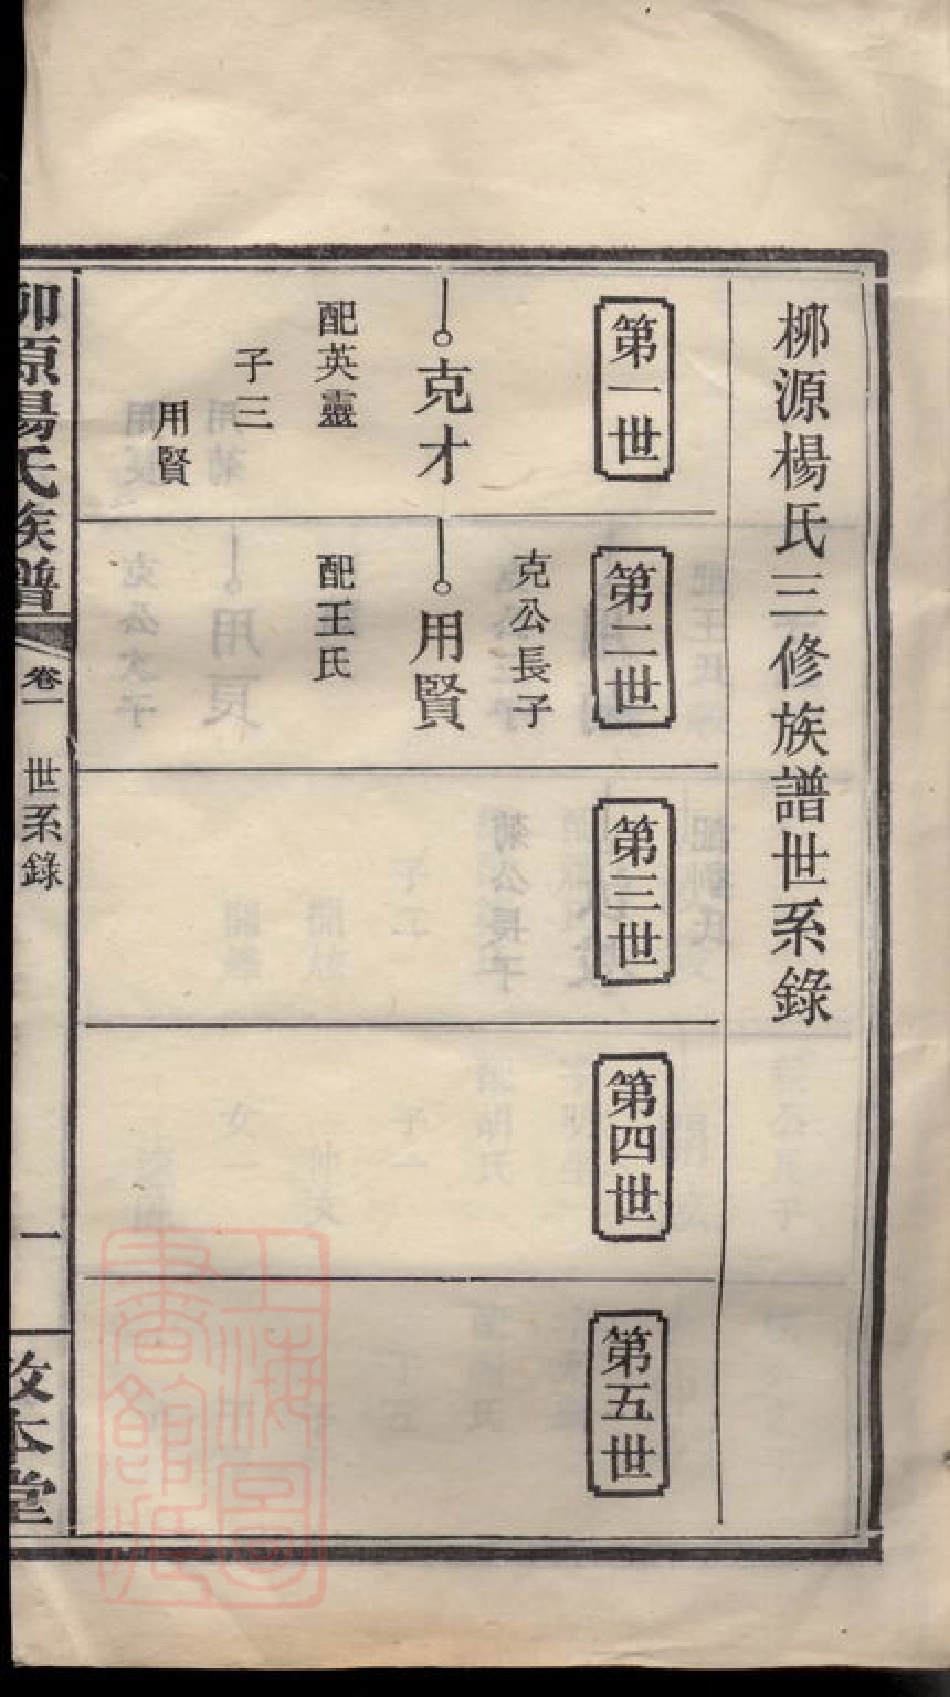 柳源楊氏三修族譜世系錄
第一世
克才
配英靈
子三
用賢
第二世
克公長子
用賢
配王氏
第三世
第四世
第五世
柳源楊氏族譜
卷一
世系錄
一
本堂
上海圖書館藏